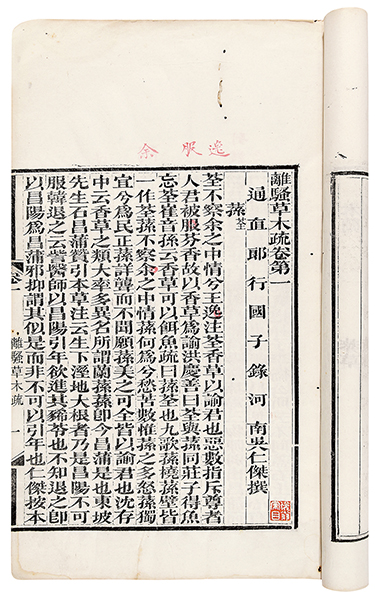 逸 服 余
離騷草木疏卷第一
通直郎行國子錄河南吳仁傑撰
蓀荃
荃不察余之中情兮王逸注荃香草以諭君也惡數指斥尊者
人君被服芬香故以香草爲諭洪慶善曰荃與蓀同莊子得魚
忘荃崔音孫云香草可以餌魚疏曰蓀荃也九歌蓀橈蓀壁皆
一作荃蓀不察余之中情蓀何爲兮愁苦數惟蓀之多怒蓀獨
宜兮爲民正蓀詳聾而不聞願蓀美之可全皆以諭君也沈存
中云香草之類大率多異名所謂蘭蓀蓀即今昌蒲是也東坡
先生石昌蒲贊引本草注云生下溼地大根者乃是昌陽不可
服韓退之云訾醫師以昌陽引年欲進其豨苓也不知退之即
以昌陽爲昌蒲邪抑謂其似是而非不可以引年也仁傑按本
離騷草木疏 一